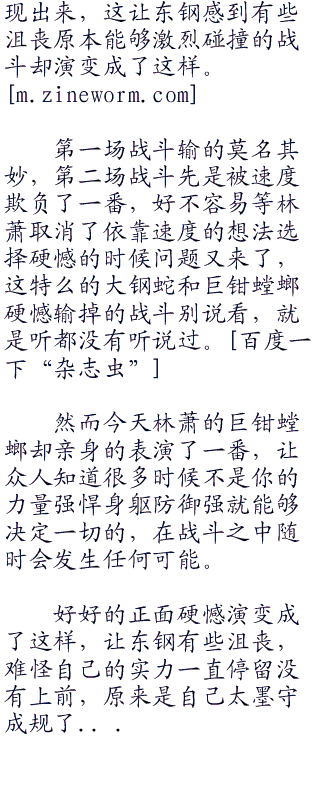 现出来，这让东钢感到有些
沮丧原本能够激烈碰撞的战
斗却演变成了这样。
[m.zineworm.com]
第一场战斗输的莫名其
妙，第二场战斗先是被速度
欺负了一番，好不容易等林
萧取消了依靠速度的想法选
择硬憾的时候问题又来了，
这特么的大钢蛇和巨钳螳螂
硬憾输掉的战斗别说看，就
是听都没有听说过。[百度一
下“杂志虫”]
然而今天林萧的巨钳螳
螂却亲身的表演了一番，让
众人知道很多时候不是你的
力量强悍身躯防御强就能够
决定一切的，在战斗之中随
时会发生任何可能。
好好的正面硬憾演变成
了这样，让东钢有些沮丧，
难怪自己的实力一直停留没
有上前，原来是自己太墨守
成规了....